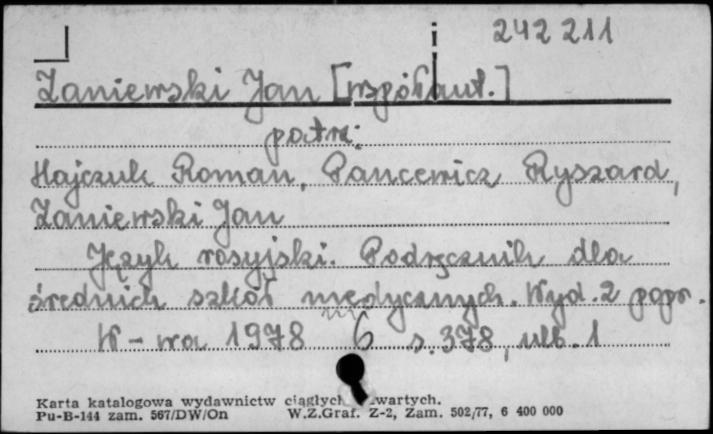 242 211
Zaniewski Jan [współaut.]
patrz:
Hajczuk Roman, Pancewicz Ryszard,
Zaniewski Jan
Język rosyjski. Podręcznik dla
średnich szkół medycznych. Wyd. 2 popr.
W-wa 1978 6 s. 378, nlb. 1
Karta katalogowa wydawnictw ciągłych wartych.
Pu-B-144 zam. 567/DW/On W.Z.Graf. Z-2, Zam. 502/77, 6 400 000